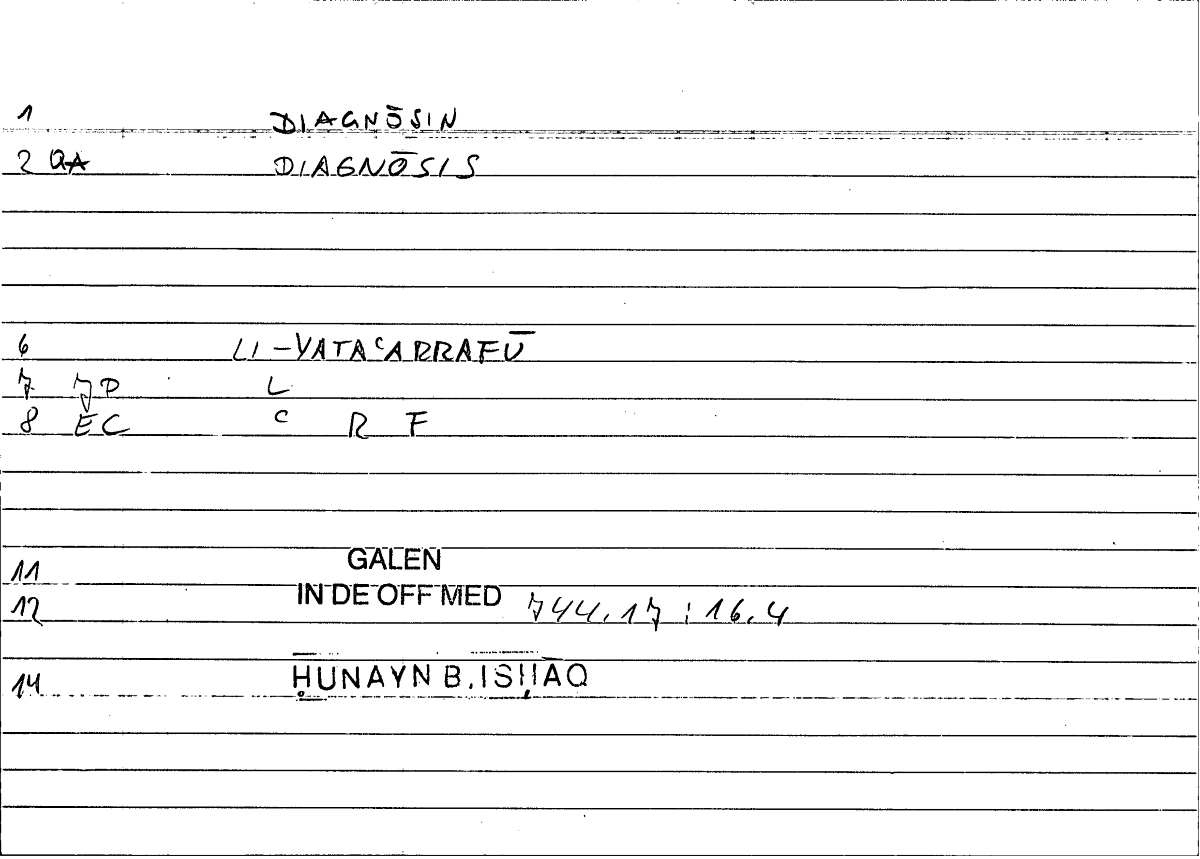 1 DIAGNŌSIN
2 QA DIAGNŌSIS
6 LI-YATAʿARRAFŪ
7 JP L
8 EC ʿ R F
11 GALEN
12 IN DE OFF MED 744.17 : 16.4
14 ḤUNAYN B. ISḤĀQ